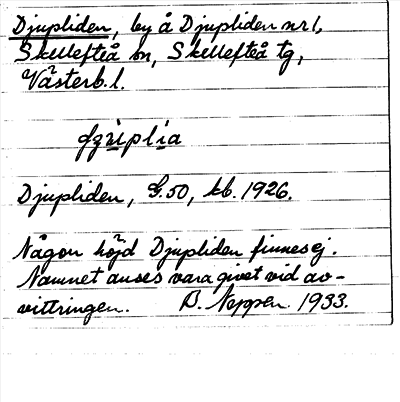 Djupliden, by å Djupliden nr 1,
Skellefteå sn, Skellefteå tg,
Västerb. l.
Djupliden, G. 50, kb. 1926.
Någon höjd Djupliden finnes ej.
Namnet anses vara givet vid av-
vittringen. B. Neppen. 1933.